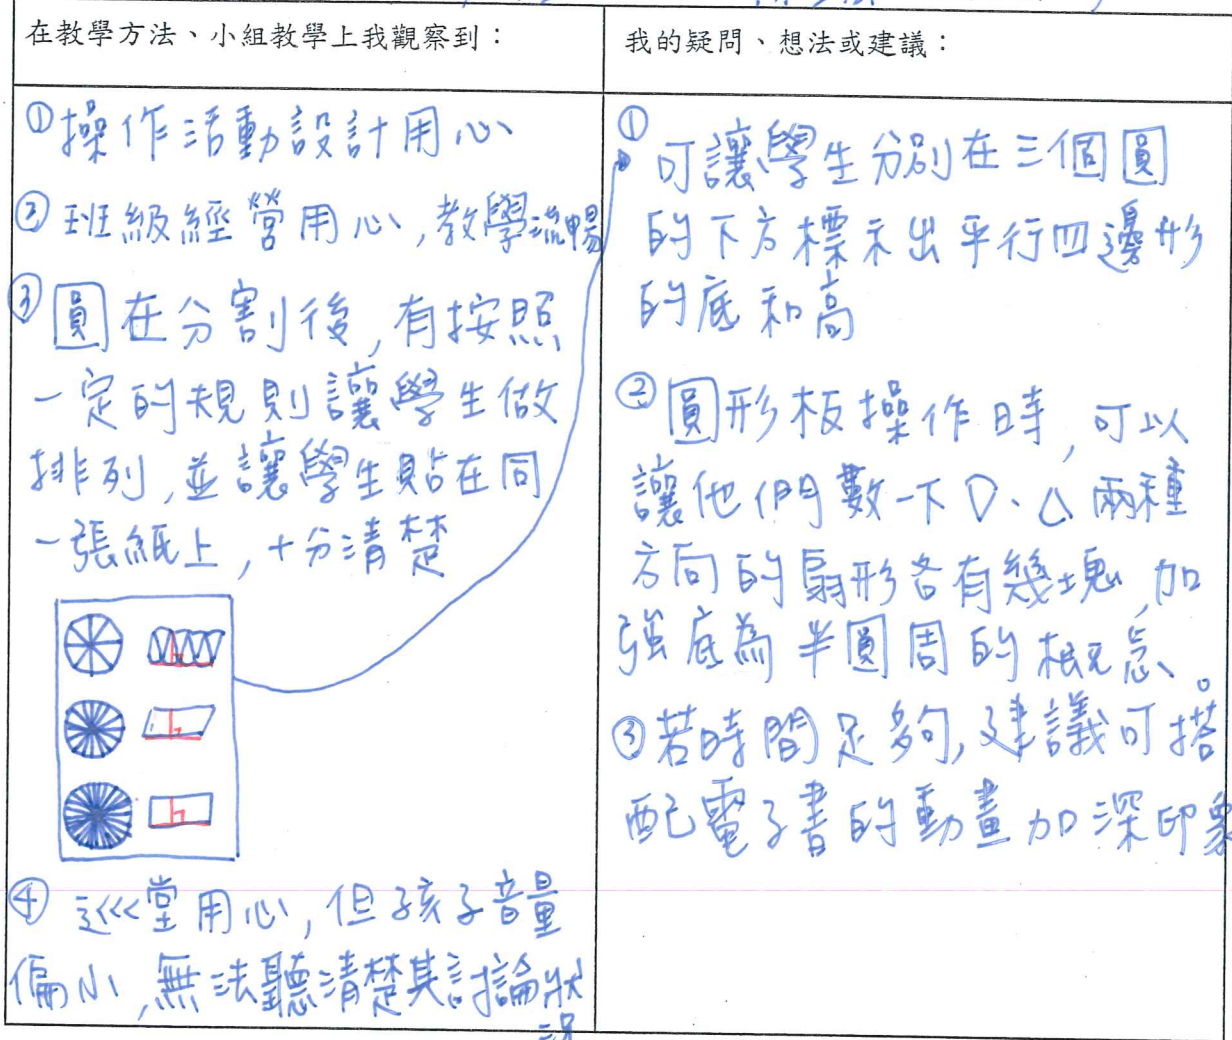 在教學方法、小組教學上我觀察到：
①操作活動設計用心
②班級經營用心,教學流暢
③圓在分割後,有按照
一定的規則讓學生做
排列,並讓學生貼在同
一張紙上,十分清楚
h
h
h
④巡堂用心,但孩子音量
偏小,無法聽清楚其討論狀
況
我的疑問、想法或建議：
①可讓學生分別在三個圓
的下方標示出平行四邊形
的底和高
②圓形板操作時,可以
讓他們數一下▽、△兩種
方向的扇形各有幾塊,加
強底為半圓周的概念。
③若時間足夠,建議可搭
配電子書的動畫加深印象